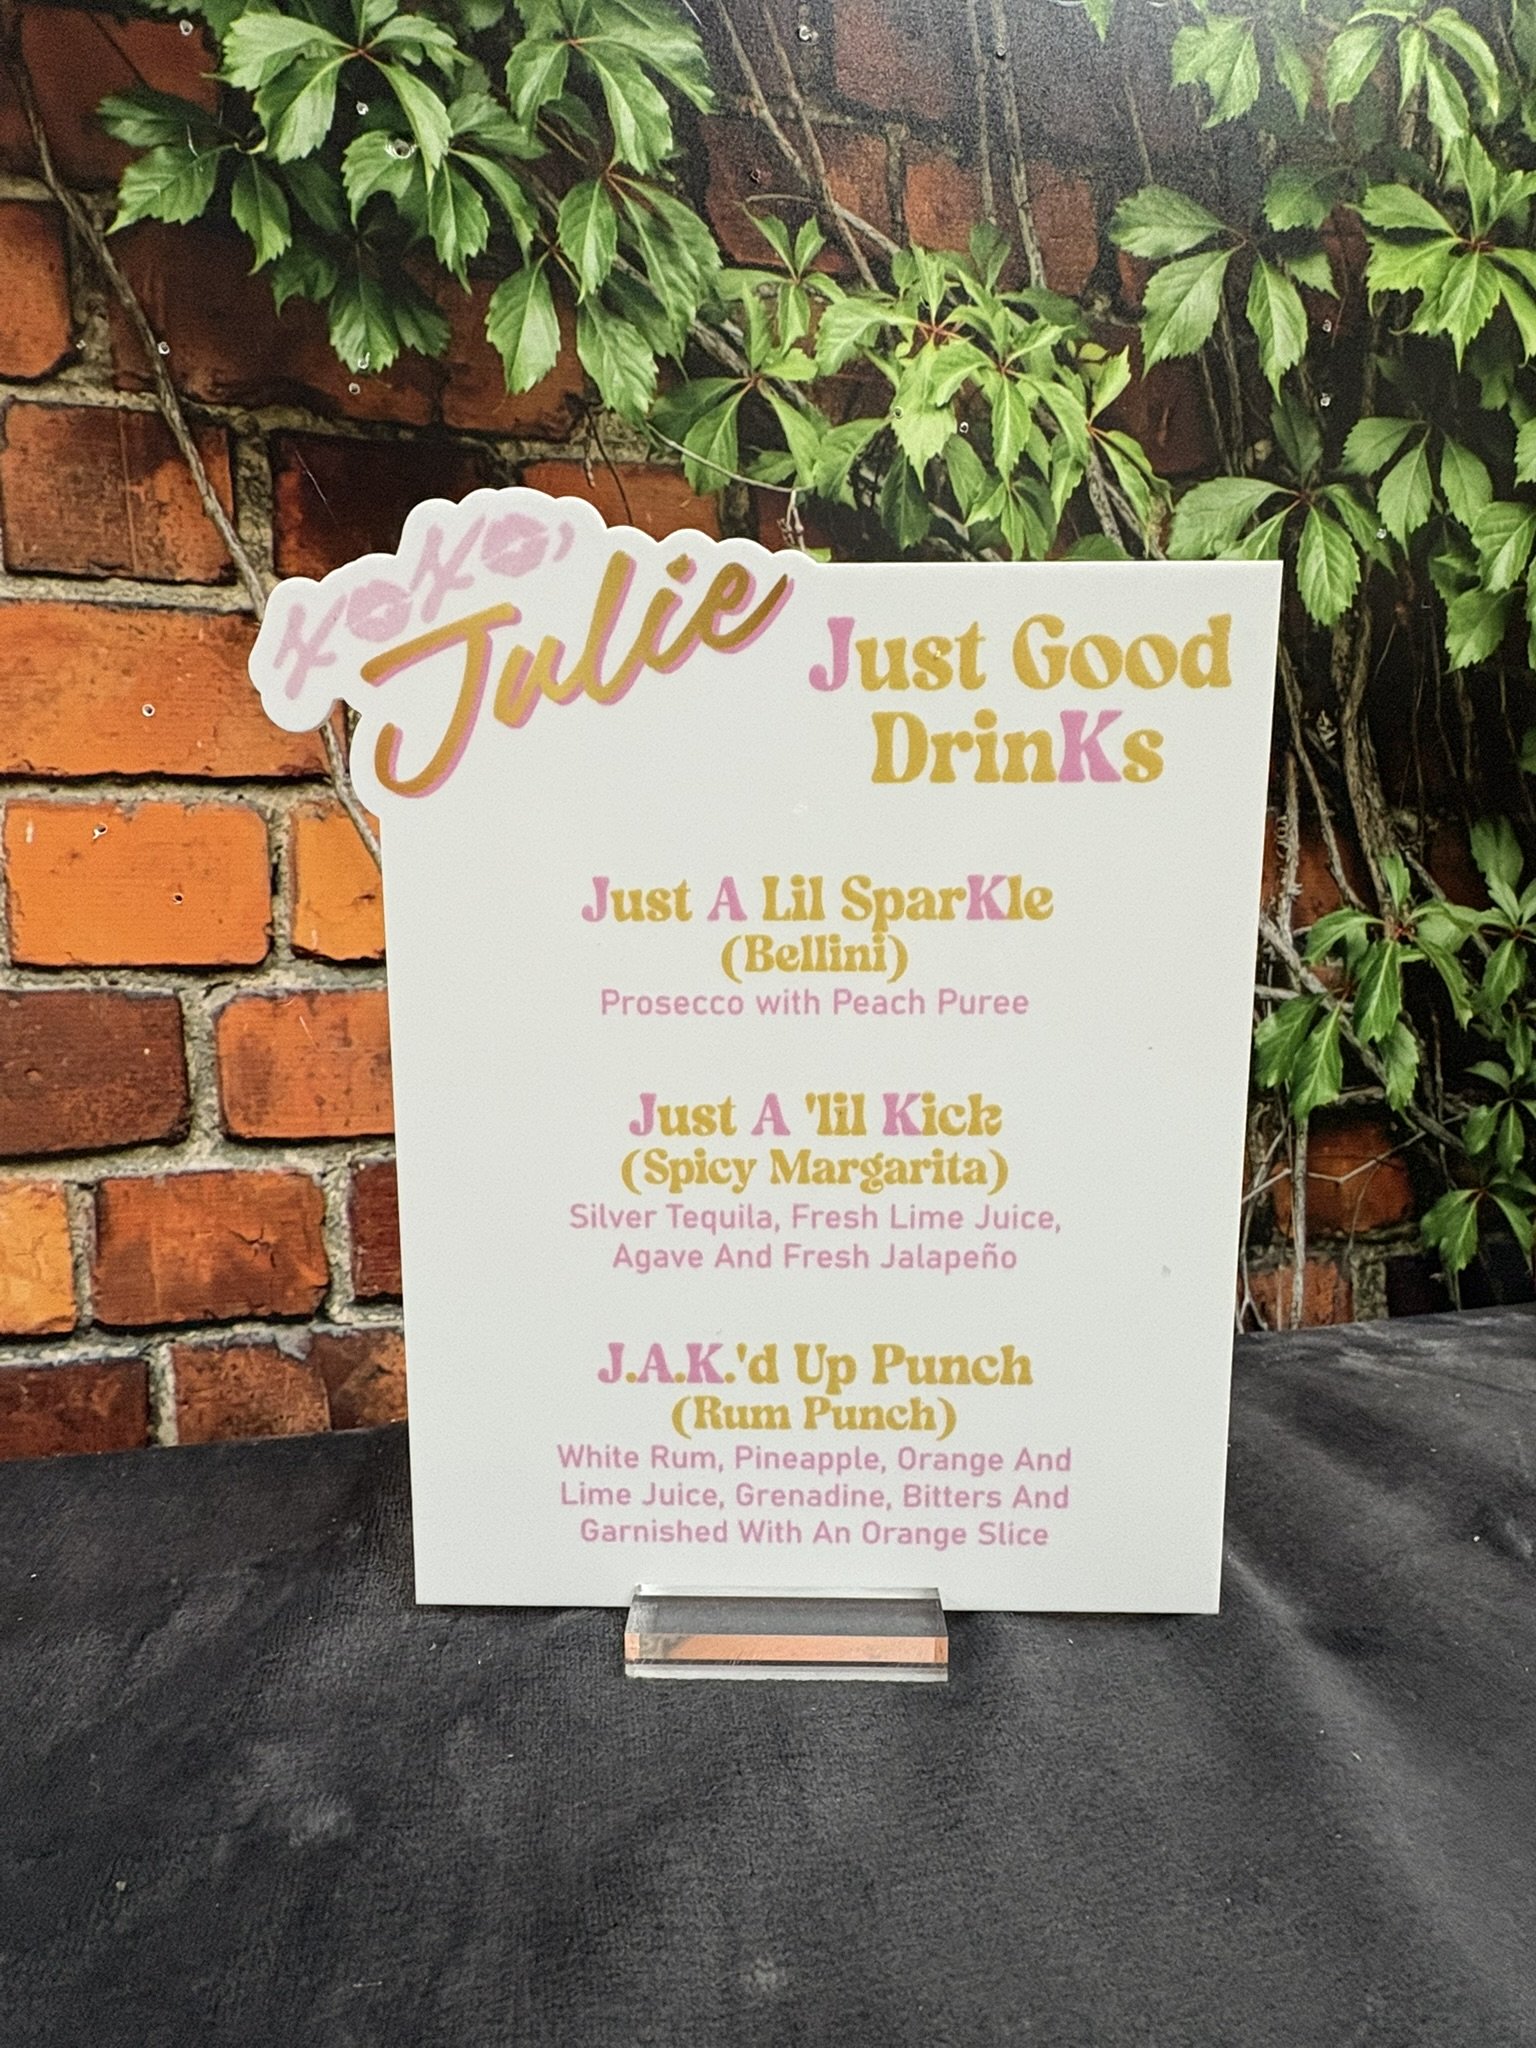 xoxo,
Julie
Just Good
DrinKs
Just A Lil SparKle
(Bellini)
Prosecco with Peach Puree
Just A 'lil Kick
(Spicy Margarita)
Silver Tequila, Fresh Lime Juice,
Agave And Fresh Jalapeño
J.A.K.'d Up Punch
(Rum Punch)
White Rum, Pineapple, Orange And
Lime Juice, Grenadine, Bitters And
Garnished With An Orange Slice